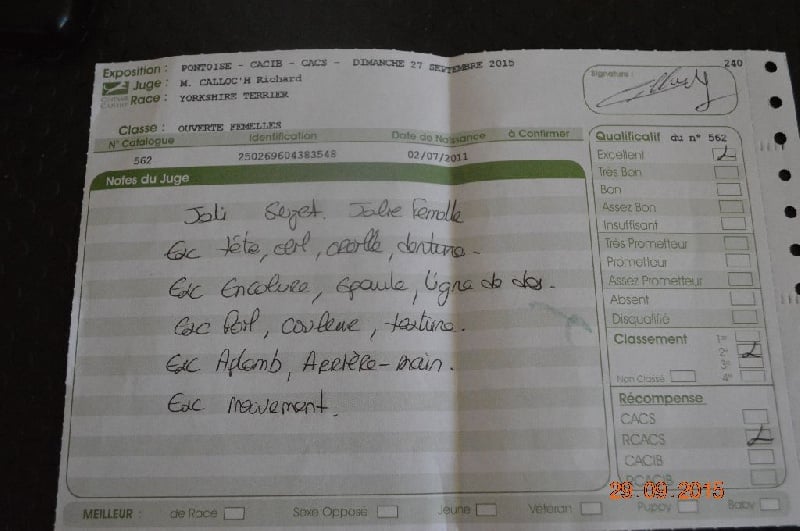 Exposition : PONTOISE - CACIB - CACS - DIMANCHE 27 SEPTEMBRE 2015
240
Juge : M. CALLOC'H Richard
Race : YORKSHIRE TERRIER
Signature :
Classe : OUVERTE FEMELLES
N° Catalogue Identification Date de Naissance à Confirmer
562 250269604383548 02/07/2011
Notes du Juge
Joli Sujet. Jolie Femelle
Exc tête, oeil, oreille, denture.
Exc Encolure, Epaule, ligne de dos.
Exc Poil, couleur, texture.
Exc Aplomb, Arrière-main.
Exc mouvement.
Qualificatif du n° 562
Excellent
Très Bon
Bon
Assez Bon
Insuffisant
Très Prometteur
Prometteur
Assez Prometteur
Absent
Disqualifié
Classement 1er
2e
3e
Non Classé 4e
Récompense
CACS
RCACS
CACIB
RCACIB
29.09.2015
MEILLEUR : de Race Sexe Opposé Jeune Vétéran Puppy Baby